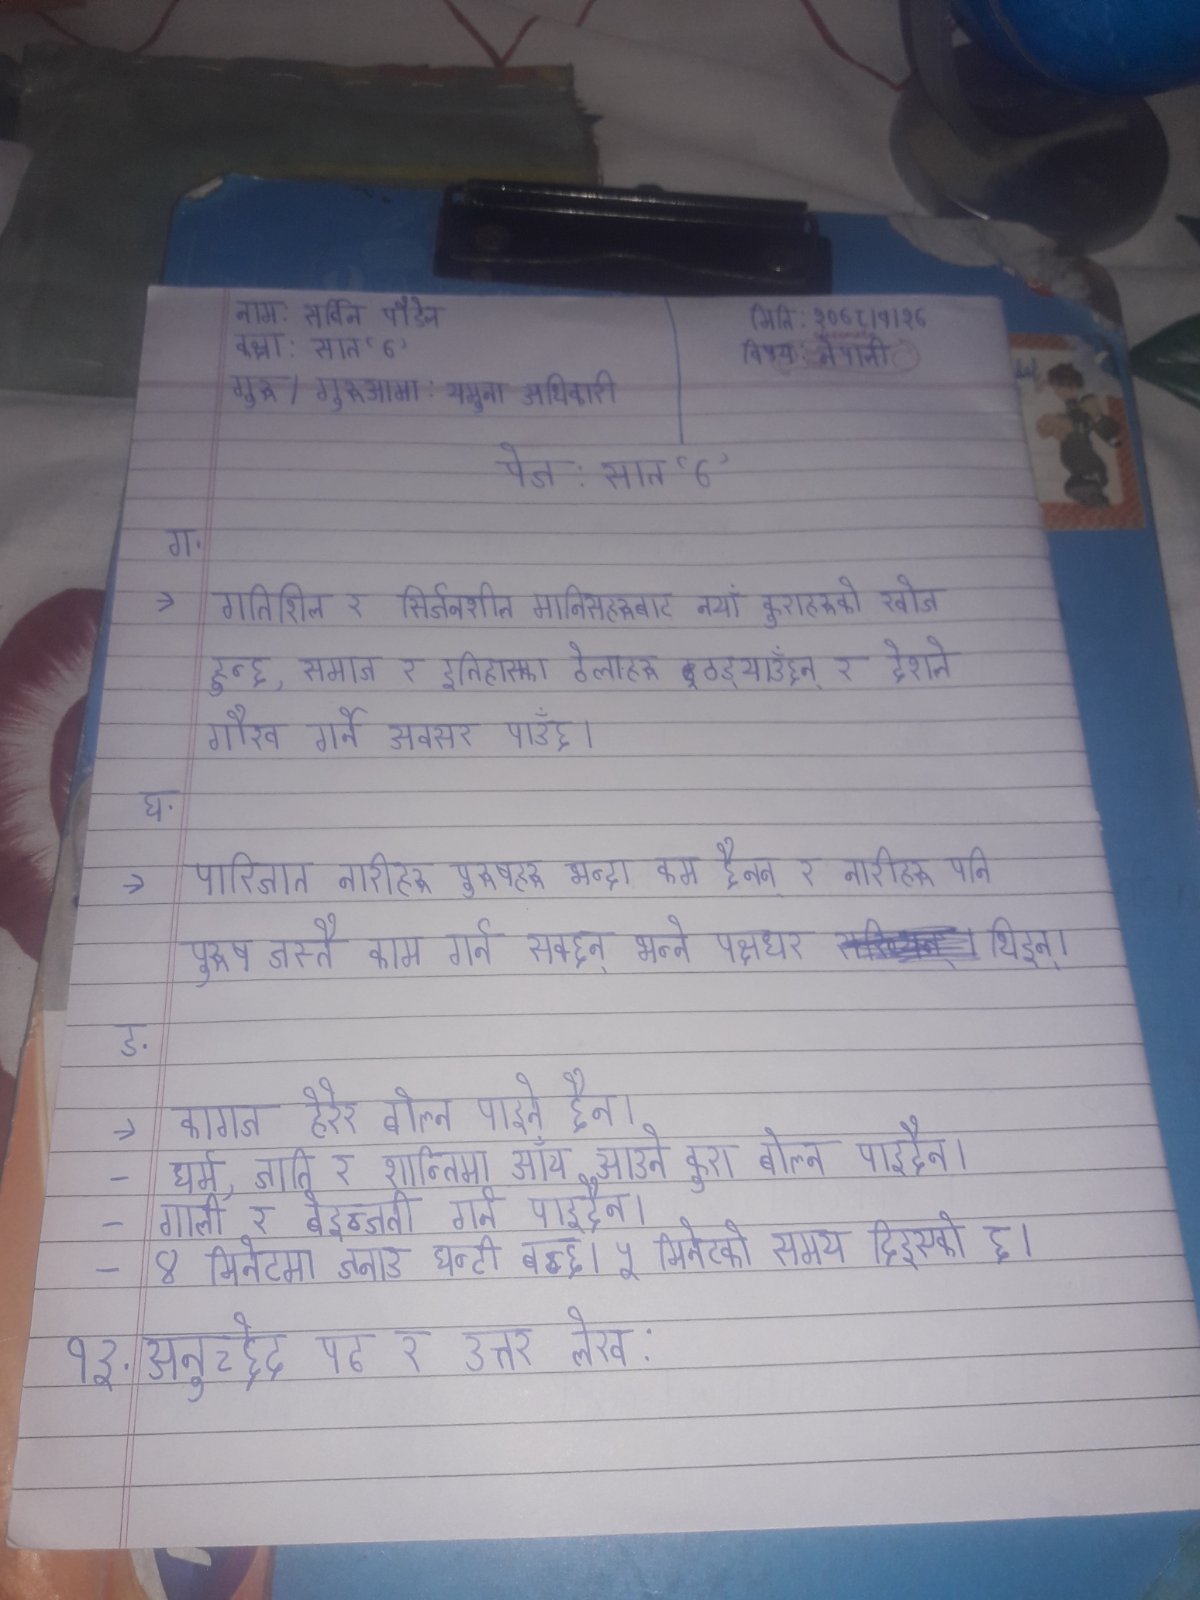 नाम: सर्विन पौडेल
मिति: २०७८।१।२६
कक्षा: सात '७'
विषय: नेपाली
गुरु / गुरुआमा: यमुना अधिकारी
पेज: सात '७'
ग.
→ गतिशिल र सिर्जनशील मानिसहरूबाट नयाँ कुराहरूको खोज
हुन्छ, समाज र इतिहासका ठेलाहरू ठड्याउँछन् र देशले
गौरव गर्ने अवसर पाउँछ।
घ.
→ पारिजात नारीहरू पुरुषहरू भन्दा कम छैनन् र नारीहरू पनि
पुरुष जस्तै काम गर्न सक्छन् भन्ने पक्षधर थिइन्।
ङ.
→ कागज हेरेर बोल्न पाइने छैन।
- धर्म, जाति र शान्तिमा आँच आउने कुरा बोल्न पाइदैन।
- गाली र बेइज्जती गर्न पाइदैन।
- ४ मिनेटमा जनाउ घन्टी बज्छ। ५ मिनेटको समय दिइएको छ।
१३. अनुच्छेद पढ र उत्तर लेख: